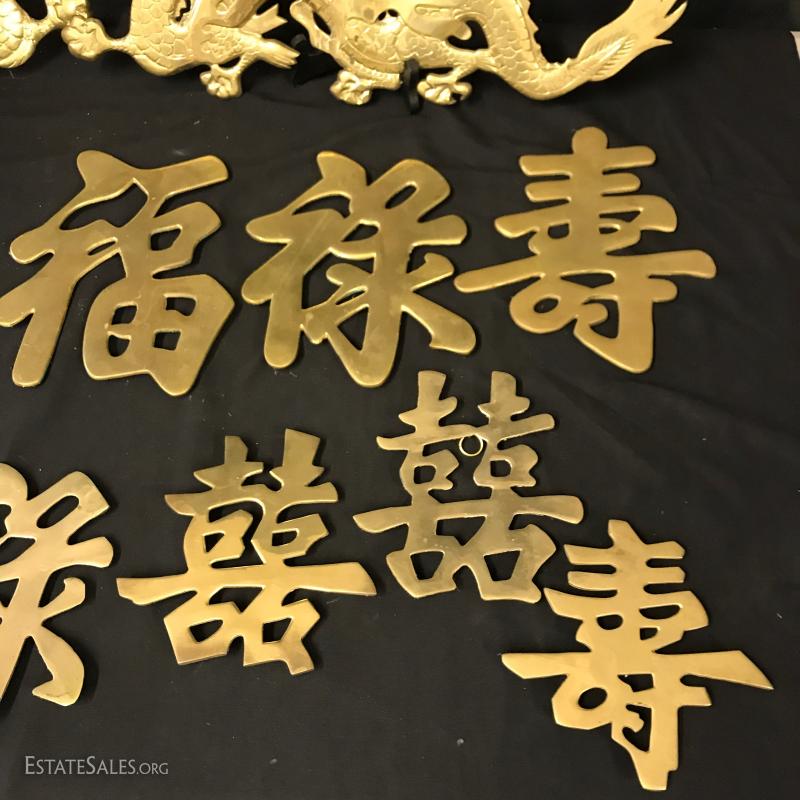 福祿壽
祿囍囍壽
ESTATESALES.ORG